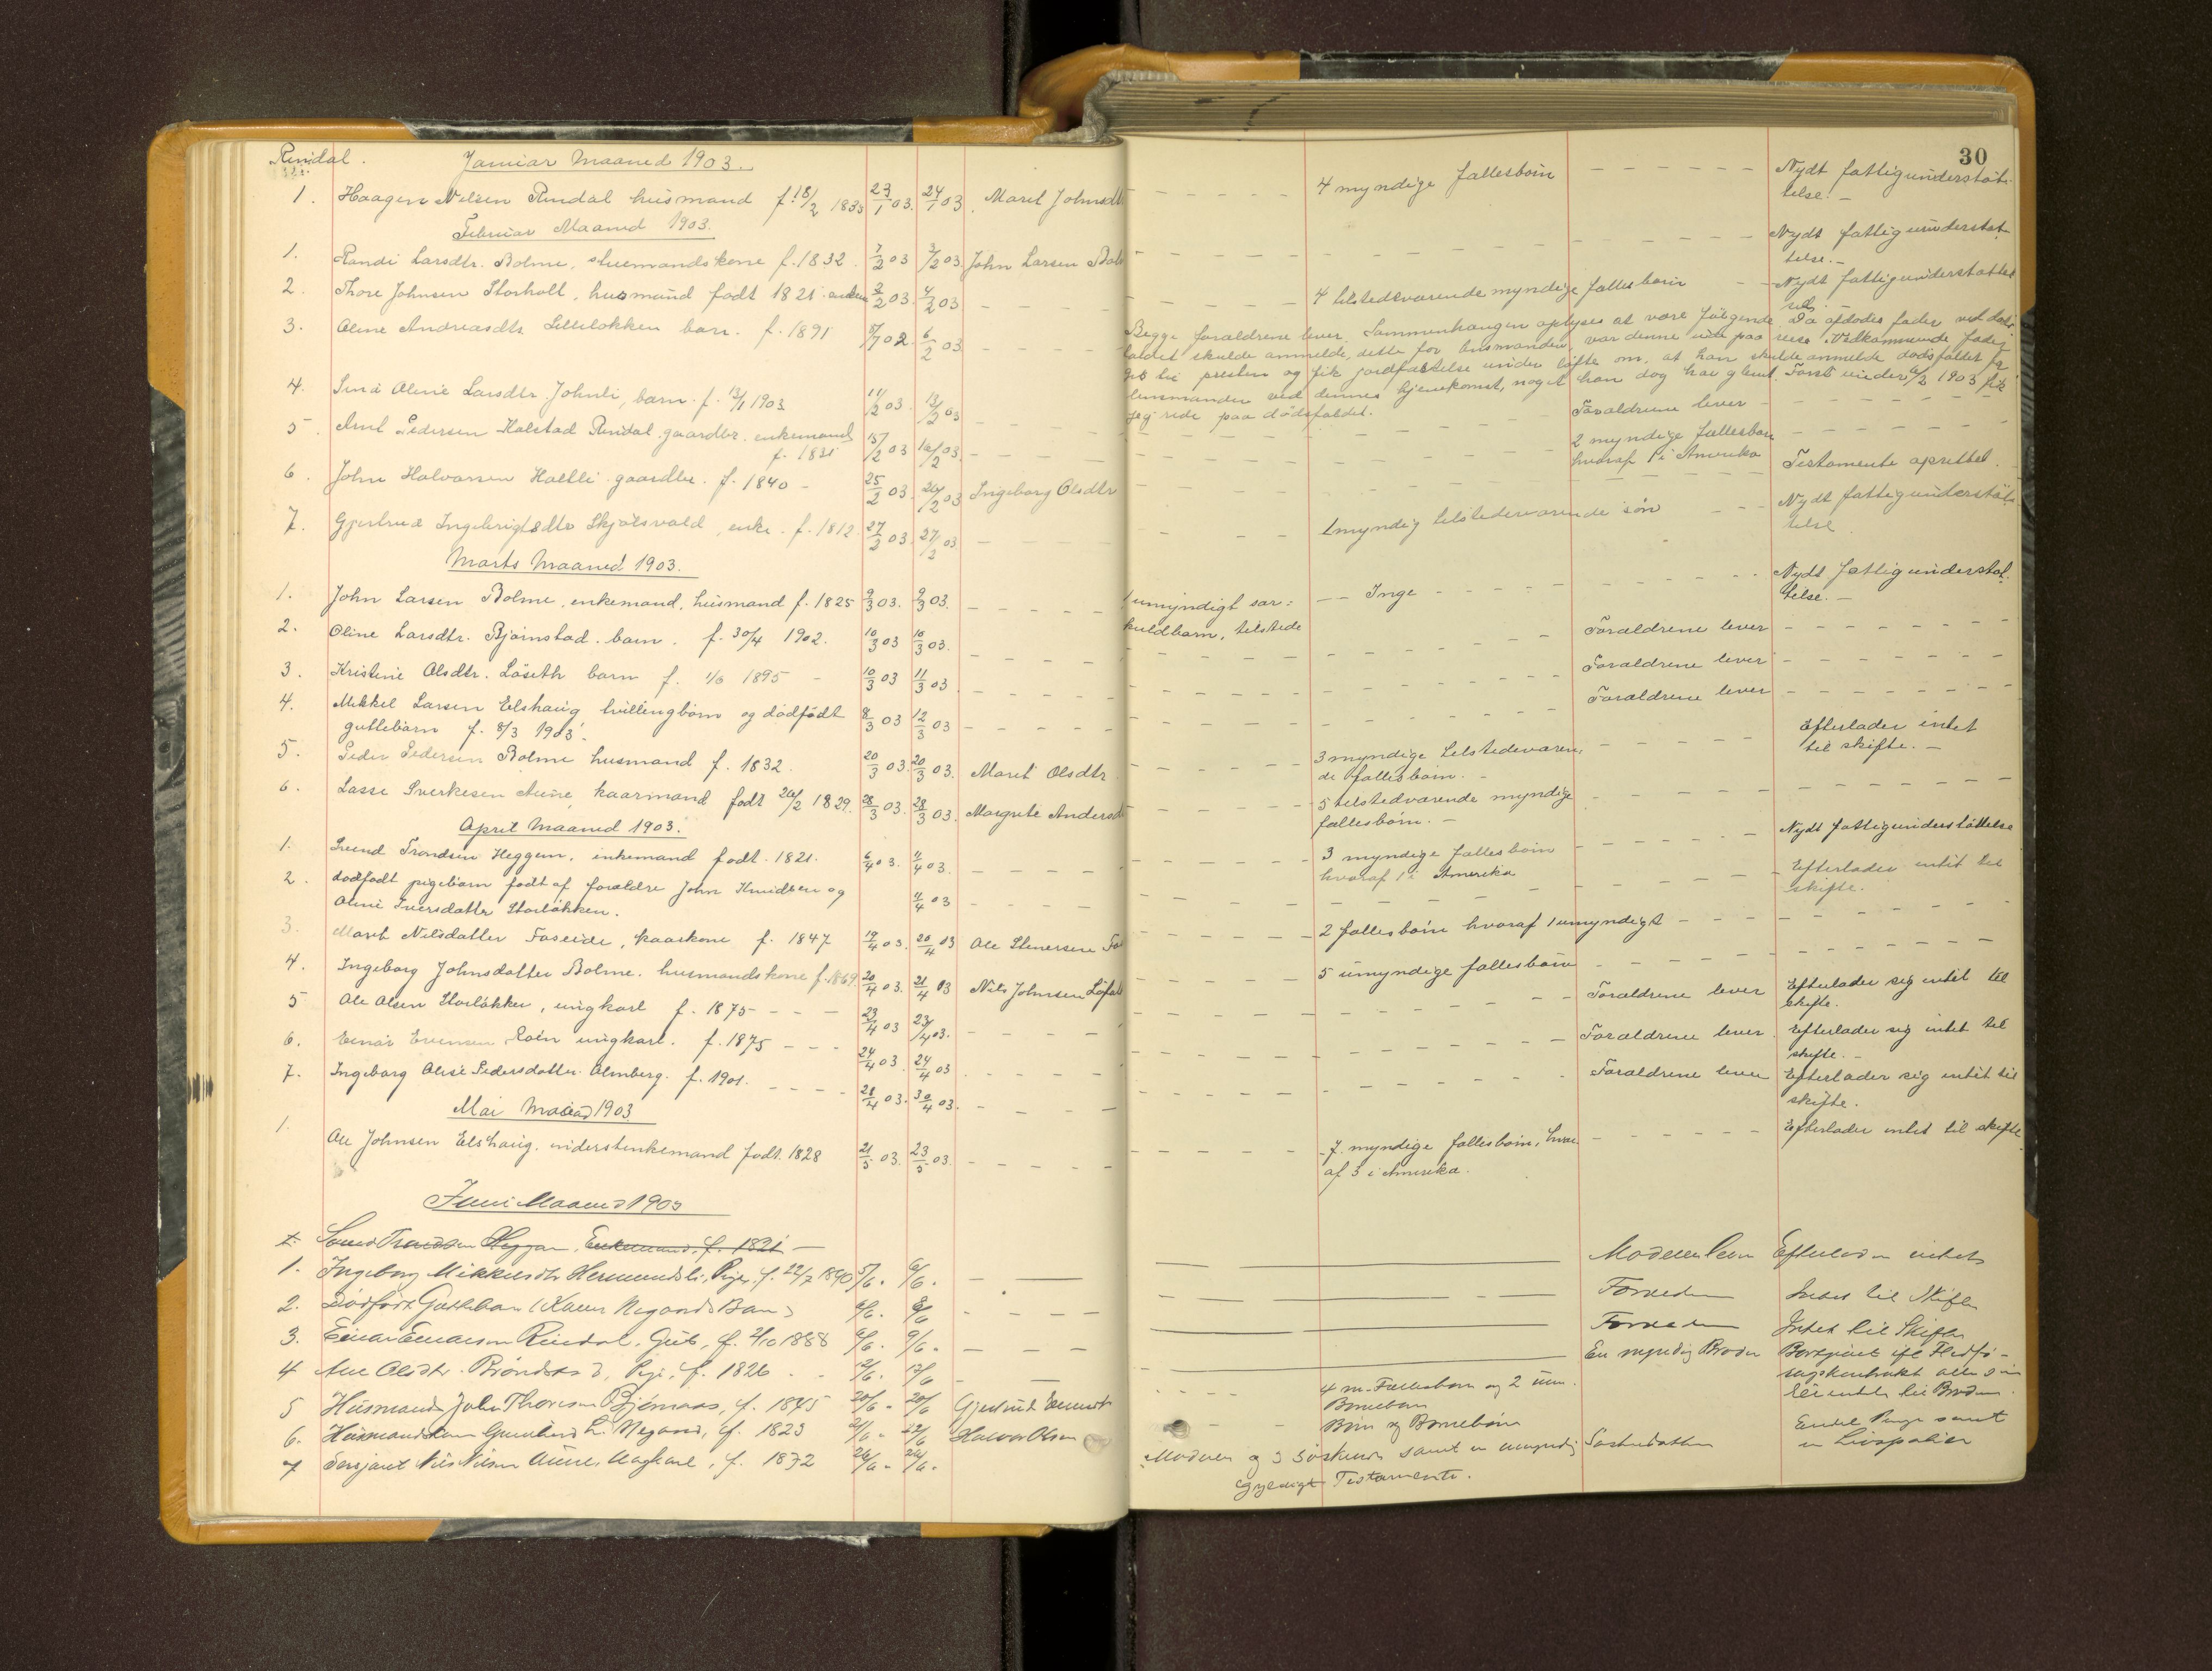 30
Rindal. Januar Maaned 1903.
1. Haagen Nilsen Rindal husmand f. 18/2 1835 23/1 03. 24/1 03 Marit Johnsdt - - - 4 myndige fællesbörn - - - Nydt fattigunderstöt-
telse. -
Februar Maaned 1903.
1. Randi Larsdtr. Bolme, husmandskone f. 1832. 1/2 03 3/2 03. John Larsen Bol - - - Nydt fattigunderstöt-
telse. -
2. Thore Johnsen Storholt, husmand födt 1821 3/2 03. 4/2 03 - - - 4 tilstedeværende myndige fællesbörn - - Nydt fattigunderstöttel
se.
3. Oline Andreasdtr Lilleløkken barn. f. 1891 02. 6/2 03 - - - Begge forældrene lever. Sammenhængen oplyses at være følgende: Da afdödes fader ved döds-
faldet skulde anmelde dette for lensmanden, var denne ude paa reise. Vedkommende fader
gik til presten og fik jordfæstelse under löfte om, at han skulde anmelde dödsfaldet for
lensmanden ved dennes hjemkomst, noget han dog har glemt. Först under 6/2 1903 fik
jeg rede paa dödsfaldet.
4. Larsdtr. Johnli, barn. f. 13/1 1903 11/2 03. 13/2 03 - - - Forældrene lever - - -
5. Arnt Pedersen Halstad Rindal gaardbr. enkemand
f. 1831 15/2 03 16/2 03. - - - 2 myndige fællesbörn
hvoraf 1 i Amerika - - -
6. John Halvorsen gaardbr. f. 1840 - 25/2 03. 26/2 03 Ingeborg Olsdtr - - - Testamente oprettet.
7. Gjertrud Ingebrigtsdtr Skjölsvold, enke. f. 1812. 27/2 03. 27/2 03. - - - 1 myndig tilstedeværende sön - - - Nydt fattigunderstöt-
telse.
Marts Maaned 1903.
1. John Larsen Bolme, enkemand, husmand f. 1825 9/3 03. 9/3 03. - - - 1 umyndigt sær-
kuldbarn, tilstede - - Inge - - - Nydt fattigunderstöt-
telse. -
2. Oline Larsdtr. Bjørnstad. barn. f. 30/4 1902. 10/3 03 10/3 03. - - - Forældrene lever - - -
3. Kristine Olsdtr. Löseth barn f. 1/6 1895 - 10/3 03 11/3 03 - - - Forældrene lever - - -
4. Mikkel Larsen Elshaug tvillingbörn og dödfödt
guttebarn f. 8/3 1903. 8/3 03 12/3 03 - - - Forældrene lever - - -
5. Peder Pedersen Bolme husmand f. 1832. 20/3 03. 20/3 03. Marit Olsdtr - - - 3 myndige tilstedeværen-
de fællesbörn. - - - - Efterlader intet
til skifte. -
6. Lasse Sverkesen Aune, kaarmand födt 26/2 1829. 28/3 03. 28/3 03. Margrete Andersd - - - 5 tilstedværende myndige
fællesbörn. - - - -
April Maaned 1903.
1. Svend Trondsen Heggem, enkemand födt 1821. 6/4 03. 11/4 03. - - - 3 myndige fællesbörn
hvoraf 1 i Amerika - - - Nydt fattigunderstöttelse
2. dödfödt pigebarn födt af forældre John Knudsen og
Oline Iversdatter Storløkken. 11/4 03 - - - Efterlader intet til
skifte.
3. Marit Nilsdatter Faseide, kaarkone f. 1847 19/4 03. 20/4 03 Ole Stenersen Fa - - - 2 fællesbörn hvoraf 1 umyndigt - - -
4. Ingeborg Johnsdatter Bolme, husmandskone f. 1869. 20/4 03. 21/4 03 Nils Johnsen - - - 5 umyndige fællesbörn - - -
5 Ole Olsen Storløkken, ungkarl f. 1875 - - - 23/4 03 23/4 03. - - - Forældrene lever Efterlader sig intet til
skifte.
6. Einar Evensen ungkarl. f. 1875 - - - 24/4 03. 24/4 03 - - - Forældrene lever Efterlader sig intet til
skifte. -
7. Ingeborg Pedersdatter Almberg. f. 1901. - - - 28/4 03. 30/4 03. - - - Forældrene lever Efterlader sig intet til
skifte.
Mai Maaned 1903
1. Ole Johnsen Elshaug, enkemand födt 1828 21/5 03. 23/5 03. - - - 7 myndige fællesbörn, hvor
af 3 i Amerika. - - - Efterlader intet til skifte
Juni Maaned 1903
1. Svend Trondsen Heggem, Enkemand, f. 1821 -
1. Ingeborg Mikkelsdtr Hermundsli, Pige, f. 22/7 1890 5/6. 6/6. - Moderen lever Efterlader intet
2. Dödfödt Guttebarn (Karen Negaards Barn) 6/6. 8/6 - - - Forældre Intet til Skifte
3. Einar Einarsen Rindal, Gut, f. 2/10 1888 6/6. 9/6. - - - Forældre Intet til Skifte
4 Ane Olsdtr. Bröndstad, Pige, f. 1826 - 12/6. 17/6 - En myndig Broder
alle sin
Broderen.
5 Husmand John Thoresen, f. 1845 20/6 - 20/6 Gjertrud - - - 4 m. Fællesbörn og 2 um.
Börnebörn
6. Husmandskone L. Negaard, f. 1823 21/6 - 22/6 Halvor Olsen - - Börn og Börnebörn Endel Penge samt
en Livspolice
7 Sersjant Nils Nilsen Aune, Ungkarl, f. 1872 26/6 - Moderen og 3 Söskende samt en umyndig Sösterdatter
gyldigt Testamente.